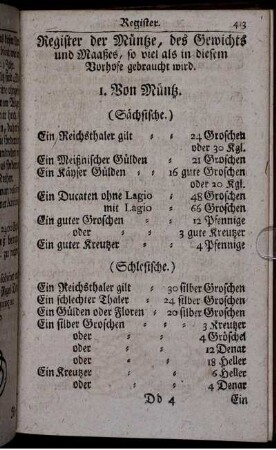 Register. 413
Register der Müntze, des Gewichts
und Maaßes, so viel als in diesem
Vorhofe gebraucht wird.
1. Von Müntz.
(Sächsische.)
Ein Reichsthaler gilt = = 24 Groschen
oder 30 Kgl.
Ein Meißnischer Gülden = 21 Groschen
Ein Käyser Gülden = = 16 gute Groschen
oder 20 Kgl.
Ein Ducaten ohne Lagio = 48 Groschen
mit Lagio = 66 Groschen
Ein guter Groschen = = 12 Pfennige
oder = = 3 gute Kreutzer
Ein guter Kreutzer = = 4 Pfennige
(Schlesische.)
Ein Reichsthaler gilt = 30 silber Groschen
Ein schlechter Thaler = 24 silber Groschen
Ein Gülden oder Floren = 20 silber Groschen
Ein silber Groschen = = 3 Kreutzer
oder = = 4 Gröschel
oder = = 12 Denar
oder = = 18 Heller
Ein Kreutzer = = 6 Heller
oder = = 4 Denar
Dd 4 Ein